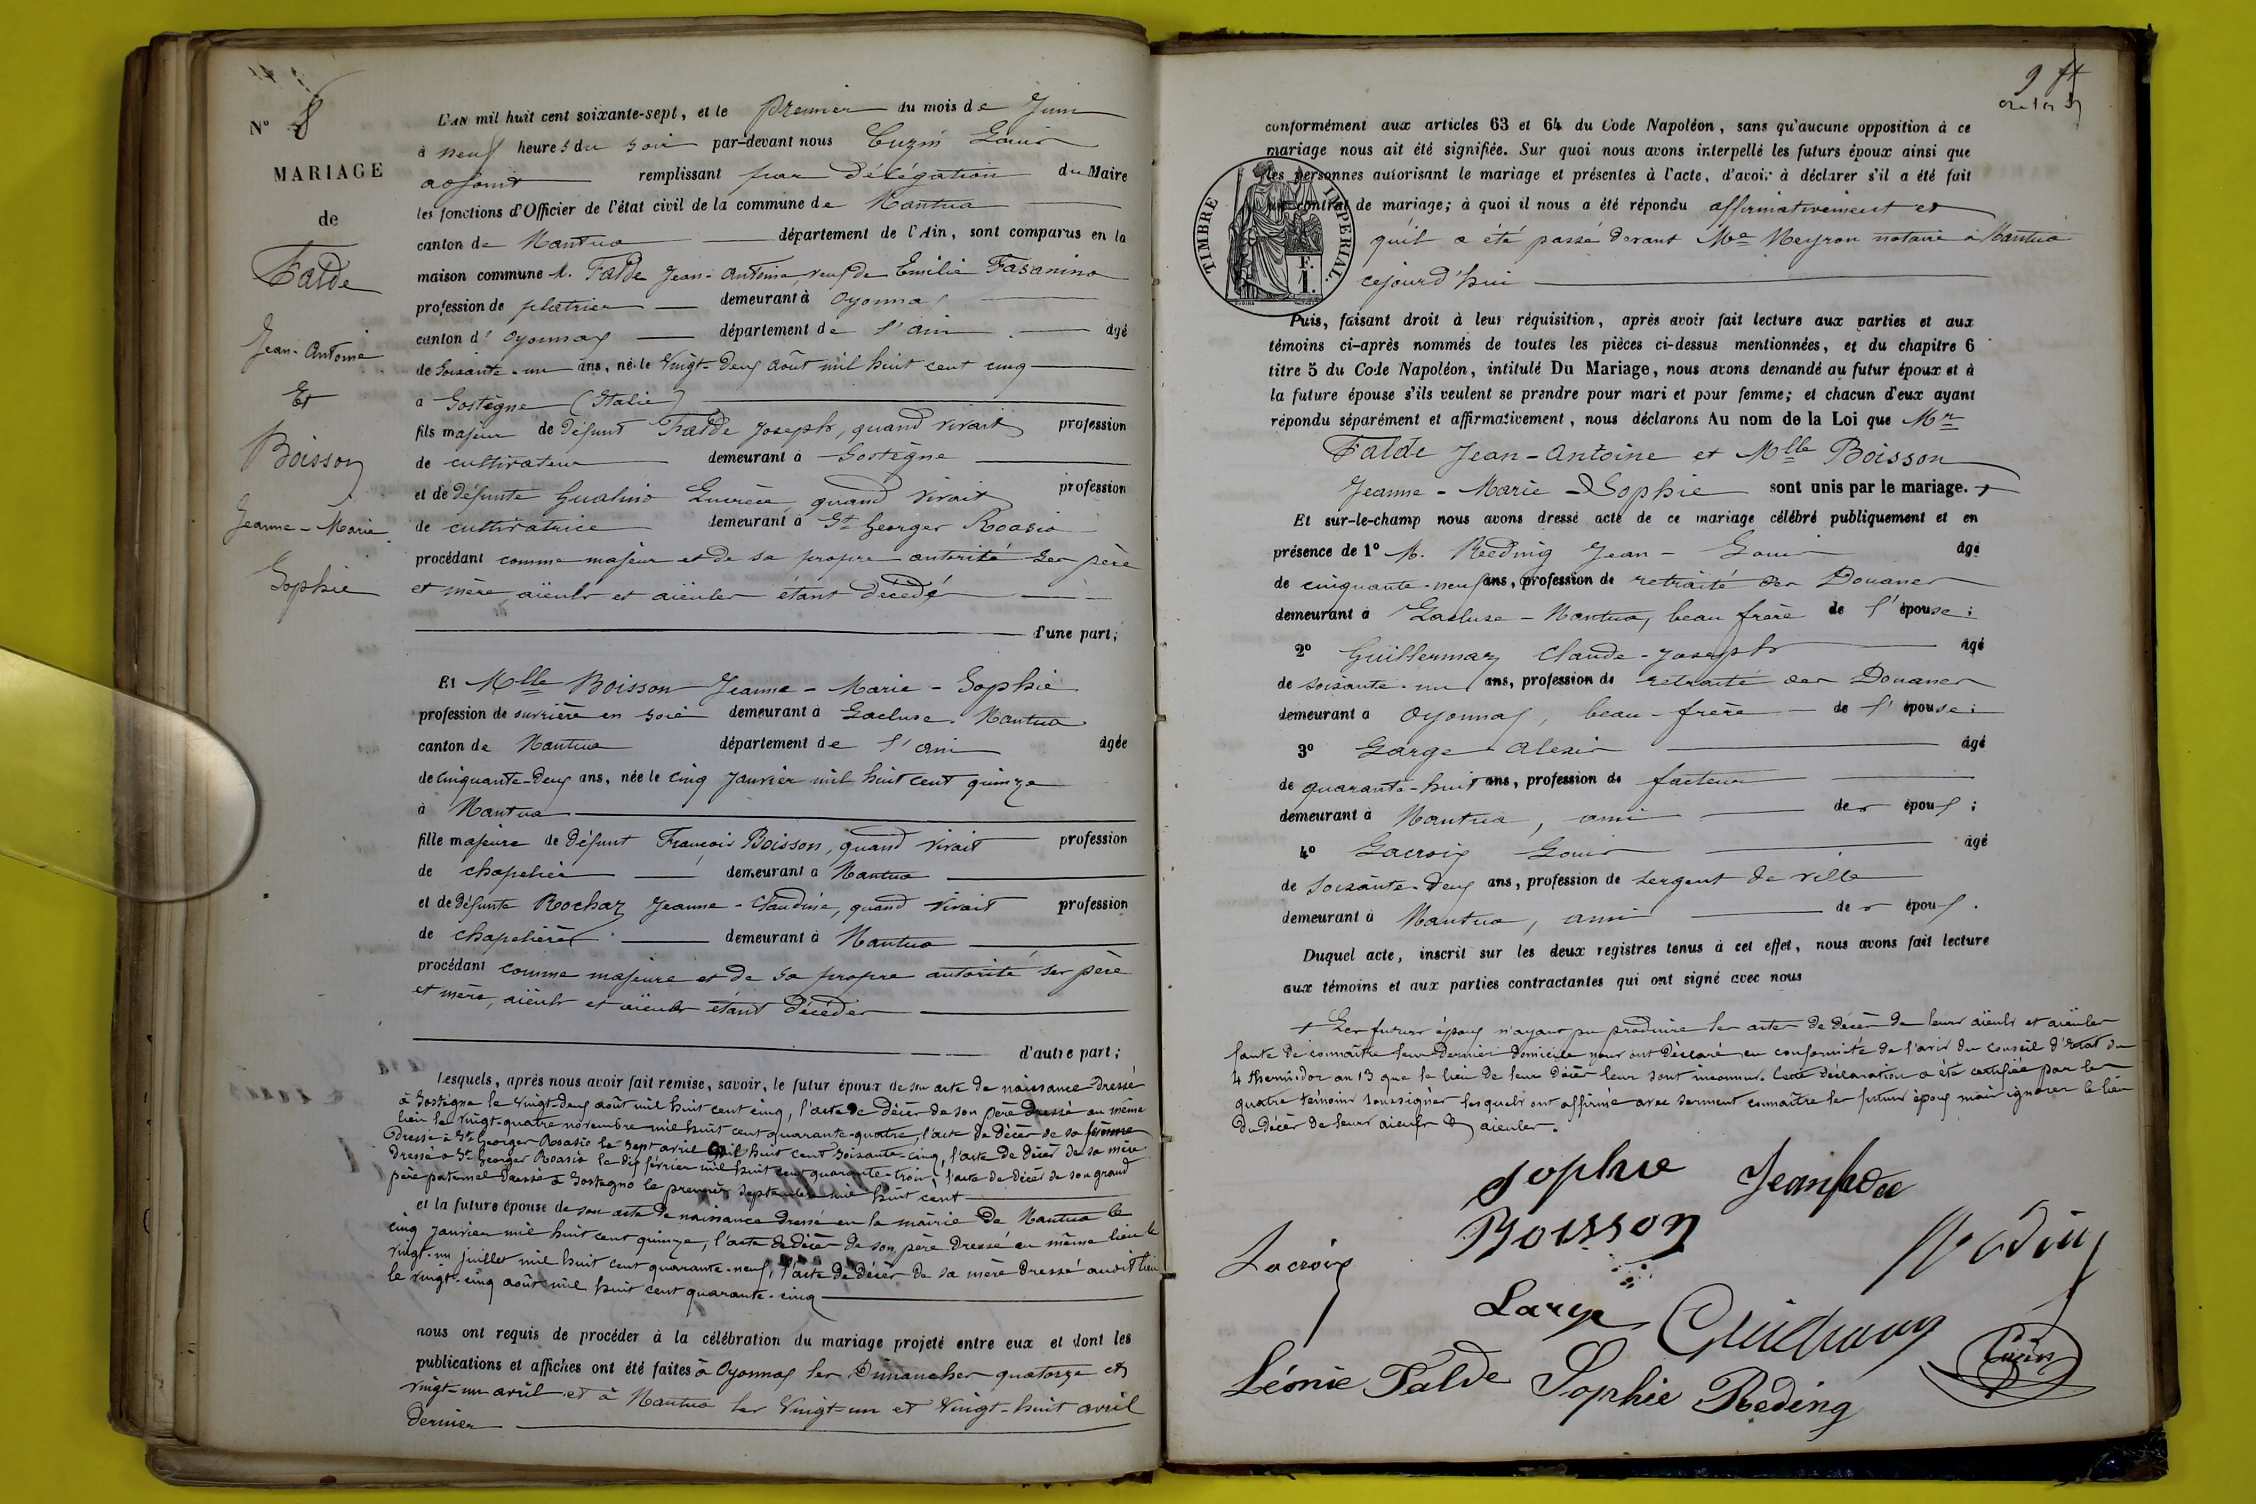 N° 8
MARIAGE
de
Falde
Jean-Antoine
Et
Boisson
Jeanne-Marie
Sophie
L'AN mil huit cent soixante-sept, et le premier du mois de Juin
à neuf heures du soir par-devant nous Cuzin Louis
adjoint remplissant par délégation du Maire
les fonctions d'Officier de l'état civil de la commune de Nantua
canton de Nantua département de l'Ain, sont comparus en la
maison commune M. Falde Jean-Antoine, veuf de Emilie Fasanino
profession de plâtrier demeurant à Oyonnax
canton d'Oyonnax département de l'ain âgé
de soixante-un ans, né le vingt-deux août mil huit cent cinq
à Sostègne (Italie)
fils majeur de défunt Falde Joseph, quand vivait profession
de cultivateur demeurant à Sostègne
et de défunte Gualino Lucrèce quand vivait profession
de cultivatrice demeurant à St Georges Roasio
procédant comme majeur et de sa propre autorité ses père
et mère, aïeuls et aïeules étant décédés
d'une part;
Et Mlle Boisson Jeanne-Marie-Sophie
profession de ouvrière en soie demeurant à Lacluse. Nantua
canton de Nantua département de l'ain âgée
de cinquante-deux ans, née le cinq Janvier mil huit cent quinze
à Nantua
fille majeure de défunt François Boisson, quand vivait profession
de chapelier demeurant à Nantua
et de défunte Rochaz Jeanne-Claudine, quand vivait profession
de chapelière demeurant à Nantua
procédant comme majeure et de sa propre autorité ses père
et mère, aïeuls et aïeules étant décédés
d'autre part;
Lesquels, après nous avoir fait remise, savoir, le futur époux de son acte de naissance dressé
à Sostègne le vingt-deux août mil huit cent cinq, l'acte de décès de son père dressé au même
lieu le vingt-quatre novembre mil huit cent quarante-quatre, l'acte de décès de sa femme
dressé à St Georges Roasio le sept avril mil huit cent soixante-cinq, l'acte de décès de sa mère
dressé à St Georges Roasio le dix février mil huit cent quarante-trois, l'acte de décès de son grand
père paternel dressé à Sostegno le premier septembre mil huit cent
et la future épouse de son acte de naissance dressé en la mairie de Nantua le
cinq Janvier mil huit cent quinze, l'acte de décès de son père dressé au même lieu le
vingt-un juillet mil huit cent quarante-neuf, l'acte de décès de sa mère dressé audit lieu
le vingt-cinq août mil huit cent quarante-cinq
nous ont requis de procéder à la célébration du mariage projeté entre eux et dont les
publications et affiches ont été faites à Oyonnax les Dimanches quatorze et
vingt-un avril et à Nantua les vingt-un et vingt-huit avril
dernier
9
conformément aux articles 63 et 64 du Code Napoléon, sans qu'aucune opposition à ce
mariage nous ait été signifiée. Sur quoi nous avons interpellé les futurs époux ainsi que
les personnes autorisant le mariage et présentes à l'acte, d'avoir à déclarer s'il a été fait
un contrat de mariage; à quoi il nous a été répondu affirmativement et
qu'il a été passé devant Me Neyron notaire à Nantua
cejourd'hui
TIMBRE IMPERIAL.
F.
1.
Puis, faisant droit à leur réquisition, après avoir fait lecture aux parties et aux
témoins ci-après nommés de toutes les pièces ci-dessus mentionnées, et du chapitre 6
titre 5 du Code Napoléon, intitulé Du Mariage, nous avons demandé au futur époux et à
la future épouse s'ils veulent se prendre pour mari et pour femme; et chacun d'eux ayant
répondu séparément et affirmativement, nous déclarons Au nom de la Loi que Mr
Falde Jean-Antoine et Mlle Boisson
Jeanne-Marie-Sophie sont unis par le mariage. +
Et sur-le-champ nous avons dressé acte de ce mariage célébré publiquement et en
présence de 1° M. Reding Jean-Louis âgé
de cinquante-neuf ans, profession de retraité des Douanes
demeurant à Lacluse-Nantua, beau frère de l'épouse;
2° Guillermaz Claude-Joseph âgé
de soixante-un ans, profession de retraité des Douanes
demeurant à Oyonnax, beau-frère de l'épouse;
3° Large Alexis âgé
de quarante-huit ans, profession de facteur
demeurant à Nantua, ami des époux;
4° Lacroix Louis âgé
de soixante-deux ans, profession de sergent de ville
demeurant à Nantua, ami des époux.
Duquel acte, inscrit sur les deux registres tenus à cet effet, nous avons fait lecture
aux témoins et aux parties contractantes qui ont signé avec nous
+ Les futurs époux n'ayant pu produire les actes de décès de leurs aïeuls et aïeules
faute de connaître leur dernier domicile nous ont déclaré en conformité de l'avis du conseil d'Etat du
4 thermidor an 13 que le lieu de leur décès leur sont inconnus. Cette déclaration a été certifiée par les
quatre témoins soussignés lesquels ont affirmé avec serment connaître les futurs époux mais ignorer le lieu
du décès de leurs aïeuls et aïeules.
Sophie
Boisson
Lacroix
Large
Léonie Falde
Sophie Reding
Cuzin